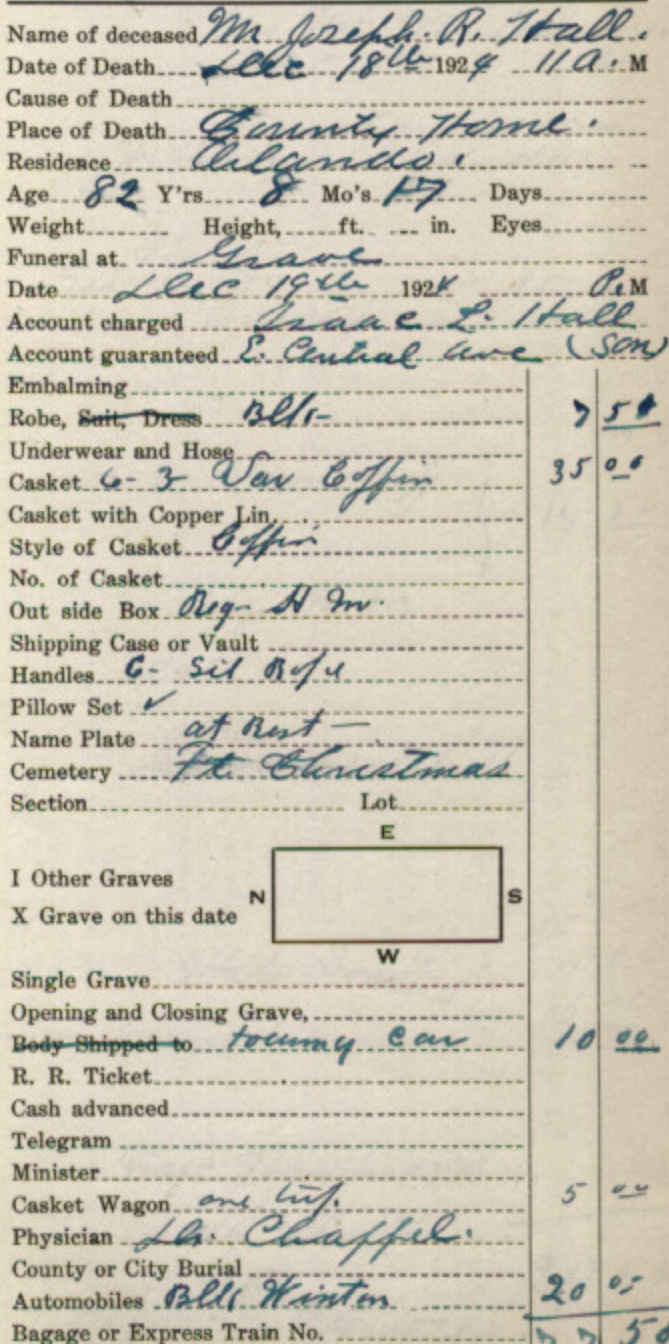 Name of deceased Mr Joseph. R. Hall.
Date of Death Dec 18th 1924 11 A. M
Cause of Death
Place of Death County Home.
Residence Orlando.
Age 82 Y'rs 8 Mo's 17 Days
Weight Height, ft. in. Eyes
Funeral at Grave
Date Dec 19th 1924 P. M
Account charged Isaac L. Hall
Account guaranteed E. Central Ave (Son)
Embalming
Robe, Suit, Dress Blk- 7 50
Underwear and Hose
Casket 6-3 Var Coffin 35 00
Casket with Copper Lin.
Style of Casket Coffin
No. of Casket
Out side Box Reg-
Shipping Case or Vault
Handles 6- Sil
Pillow Set ✓
Name Plate at Rest —
Cemetery Ft. Christmas
Section Lot
E
I Other Graves
N S
X Grave on this date
W
Single Grave
Opening and Closing Grave,
Body Shipped to Touring Car 10 00
R. R. Ticket
Cash advanced
Telegram
Minister
Casket Wagon one trip. 5 00
Physician Dr. Chappel.
County or City Burial
Automobiles Blk Winton 20 00
Bagage or Express Train No. 77 5